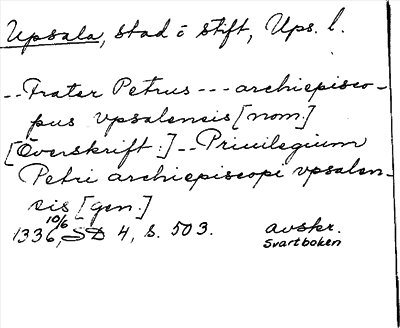 Upsala, stad o stift, Ups. l.
-- Frater Petrus --- archiepisco-
pus vpsalensis [nom.]
[Överskrift:] -- Priuilegium
Petri archiepiscopi vpsalen-
sis [gen.]
10/6
1336, SD 4, s. 503. avskr.
Svartboken